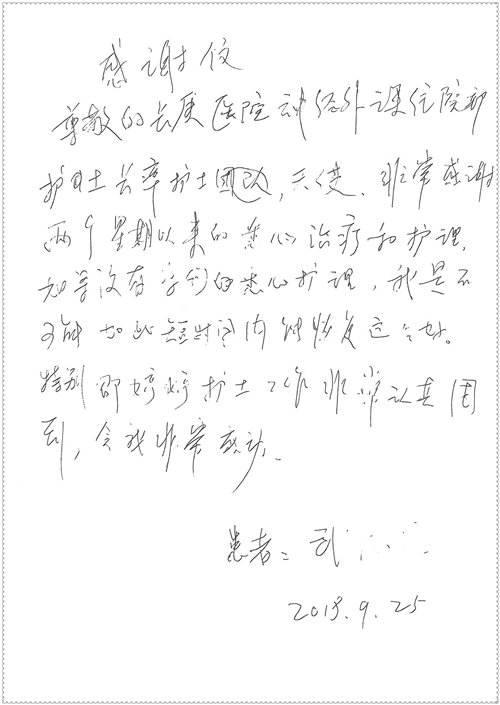 感谢信
尊敬的长庚医院神经外课住院部
护士长率护士团队,天使、非常感谢
两个星期以来的悉心治疗和护理,
如果没有你们的悉心护理,我是不
可能如此短时间内能恢复这么好。
特别邵婷婷护士工作非常认真周
到,令我非常感动。
患者:武
2013.9.25